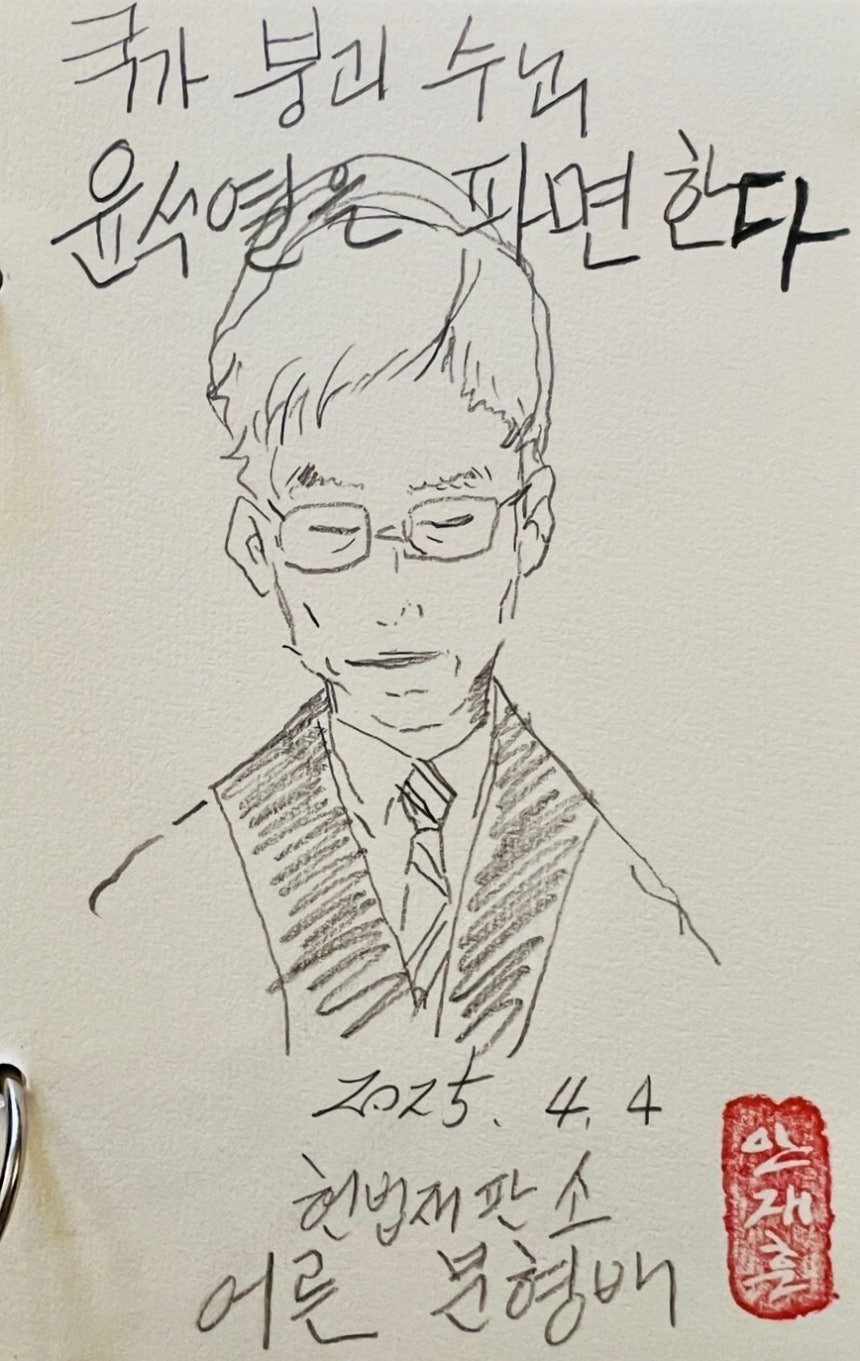 국가 붕괴 수뇌,
윤석열은 파면한다
2025. 4. 4
헌법재판소
어른 문형배